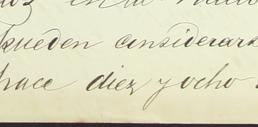 en la
pueden considerars
hace diez y ocho